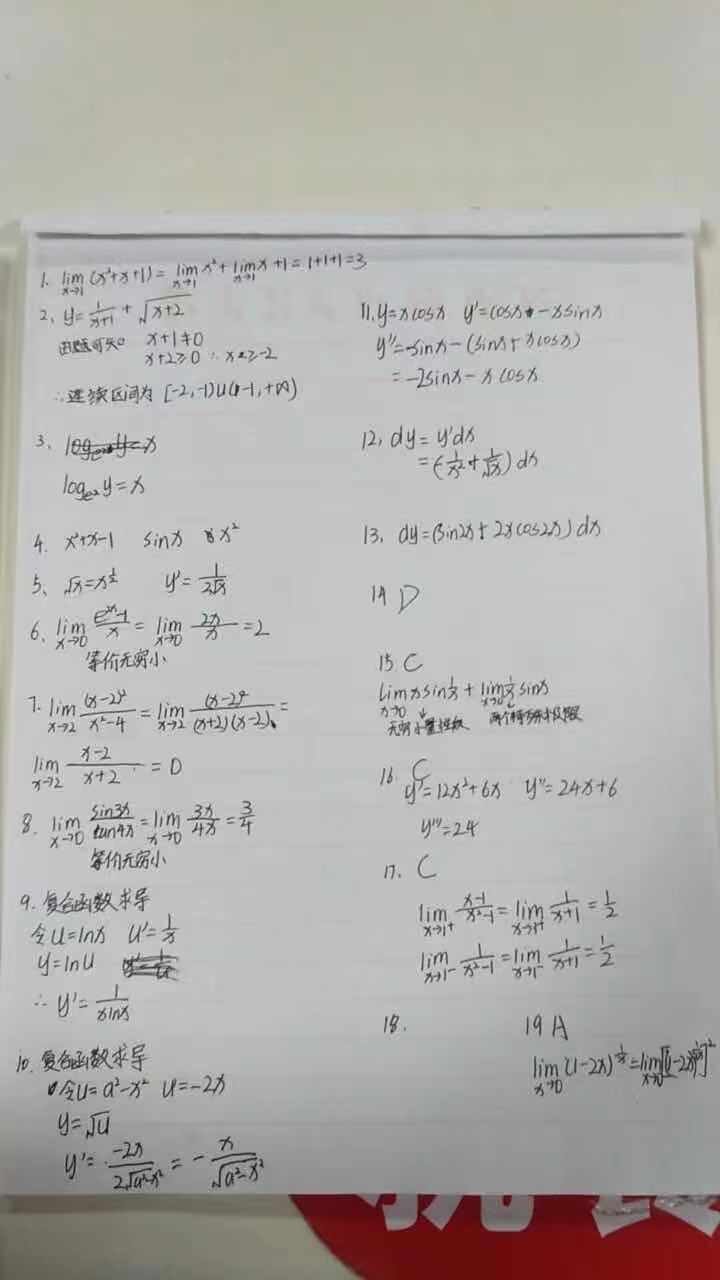 1. lim x→1 (x²+x+1) = lim x→1 x² + lim x→1 x + 1 = 1+1+1 = 3
2. y = 1/(x+1) + √(x+2)
由题可知 x+1≠0
x+2≥0 ∴ x≥-2
∴连续区间为 [-2,-1)∪(-1,+∞)
3.
log_e² y = x
4. x²+x-1 sinx x²
5. √x = x^(1/2) y' = 1/(2√x)
6. lim x→0 (e^(2x)-1)/x = lim x→0 2x/x = 2
等价无穷小
7. lim x→2 (x-2)²/(x²-4) = lim x→2 (x-2)²/((x+2)(x-2)) =
lim x→2 (x-2)/(x+2) = 0
8. lim x→0 sin3x/tan4x = lim x→0 3x/4x = 3/4
等价无穷小
9. 复合函数求导
令u=lnx u'=1/x
y=lnu
∴ y' = 1/(xlnx)
10. 复合函数求导
令u=a²-x² u=-2x
y=√u
y' = -2x/(2√(a²-x²)) = -x/√(a²-x²)
11. y=xcosx y'=cosx-xsinx
y''=-sinx-(sinx+xcosx)
=-2sinx-xcosx
12. dy=y'dx
=(-1/x²+1/√x)dx
13. dy=(sin2x+2xcos2x)dx
14 D
15 C
lim x→0 xsin1/x + lim x→0 1/x sinx
无穷小 两个
16. C
y'=12x²+6x y''=24x+6
y'''=24
17. C
lim x→1⁺ (x-1)/(x²-1) = lim x→1⁺ 1/(x+1) = 1/2
lim x→1⁻ 1/(x²-1) = lim x→1⁻ 1/(x+1) = 1/2
18. 19 A
lim x→0 (1-2x)^(1/x) = lim x→0